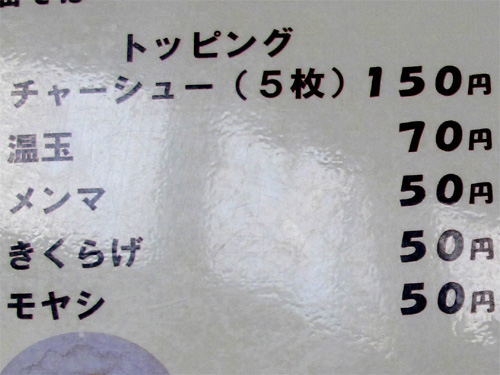 トッピング
チャーシュー（５枚）150円
温玉 70円
メンマ 50円
きくらげ 50円
モヤシ 50円